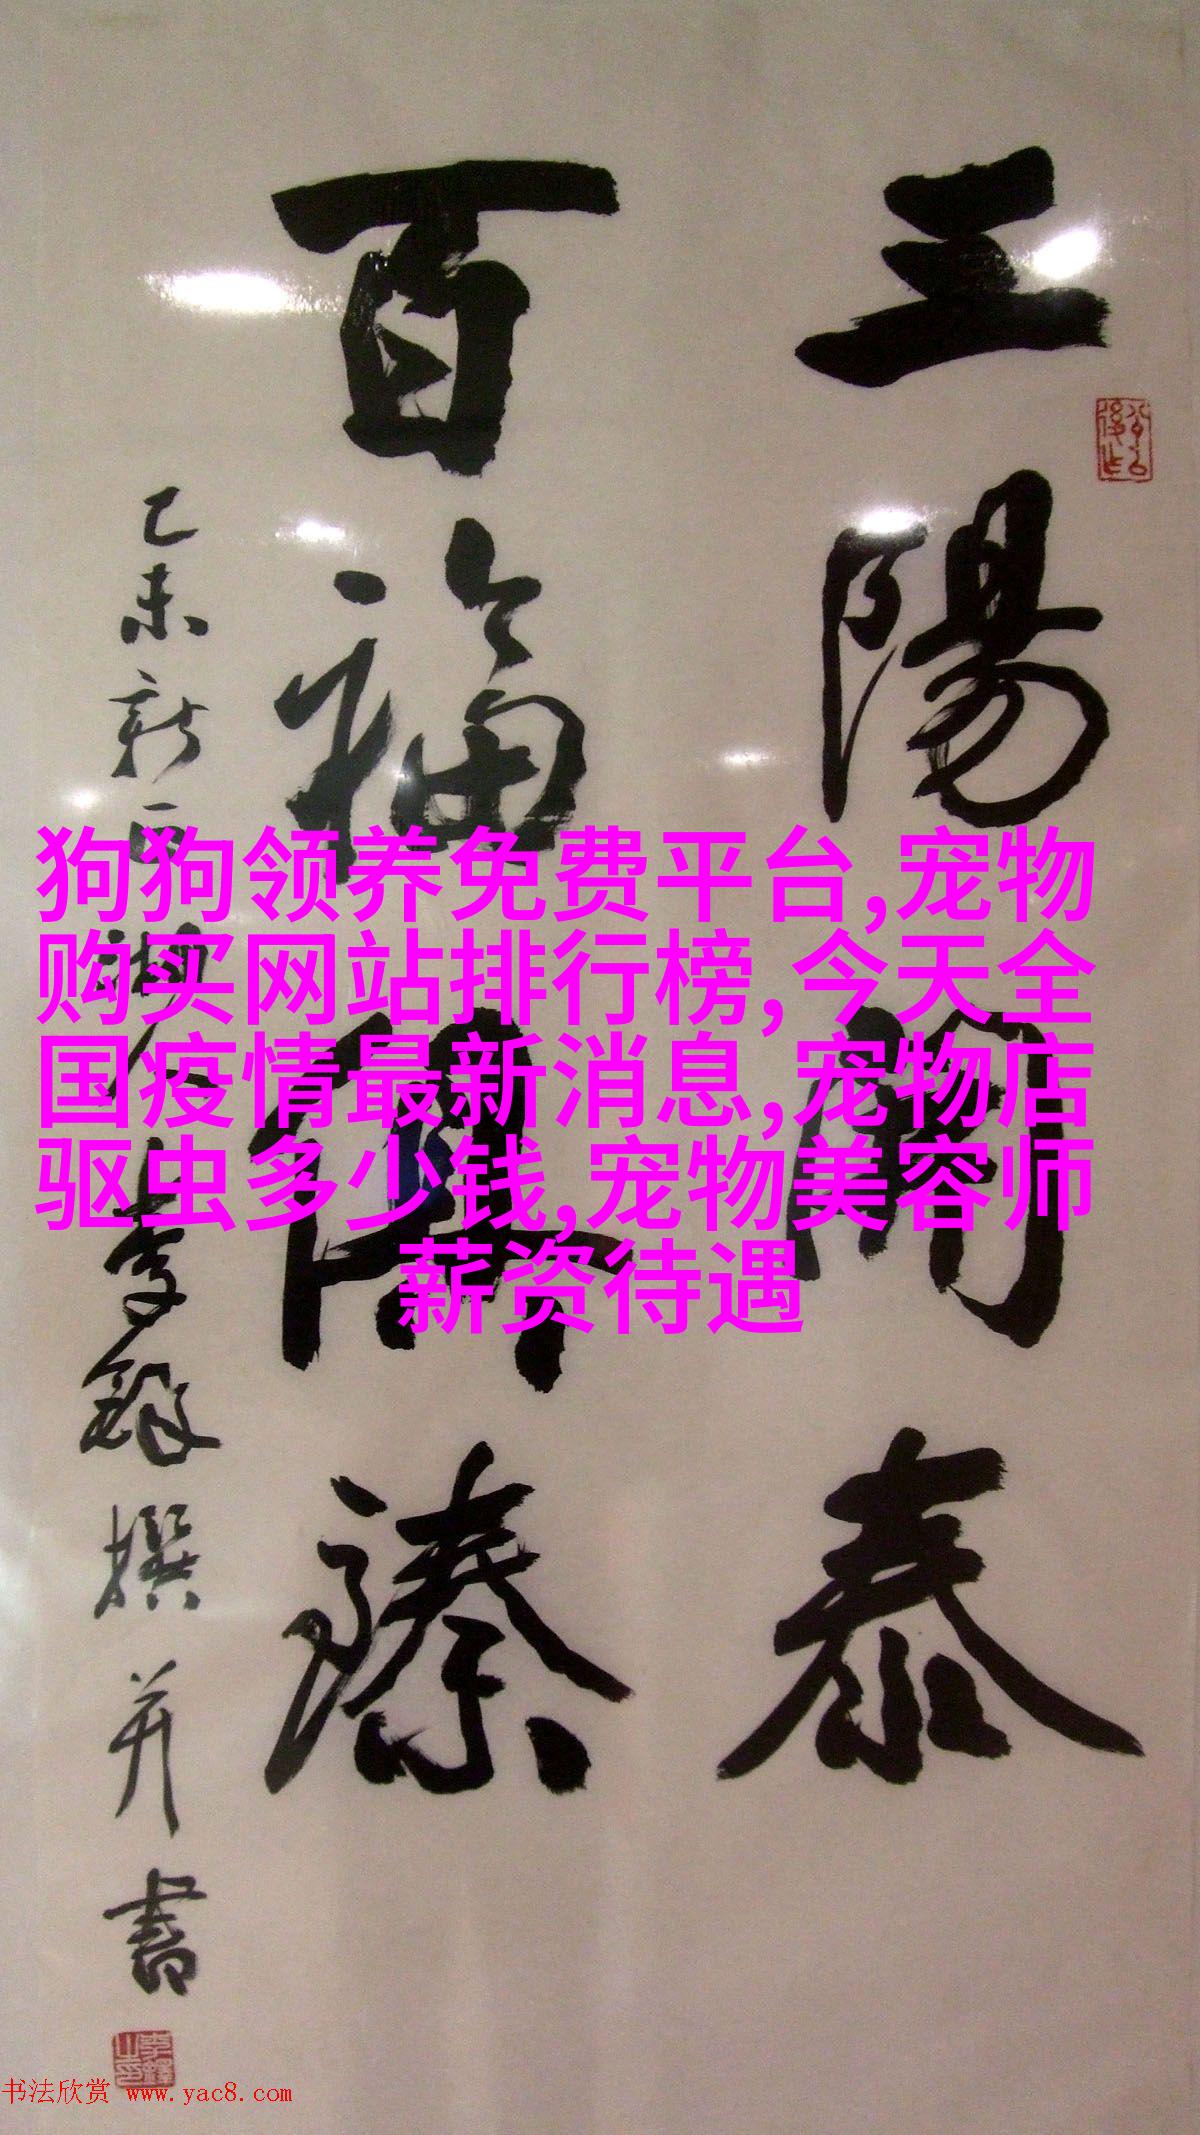 三陽開泰
百福併臻
乙未新正湖人李鐸撰并書
狗狗领养免费平台,宠物
购买网站排行榜,今天全
国疫情最新消息,宠物店
驱虫多少钱,宠物美容师
薪资待遇
书法欣赏 www.yac8.com